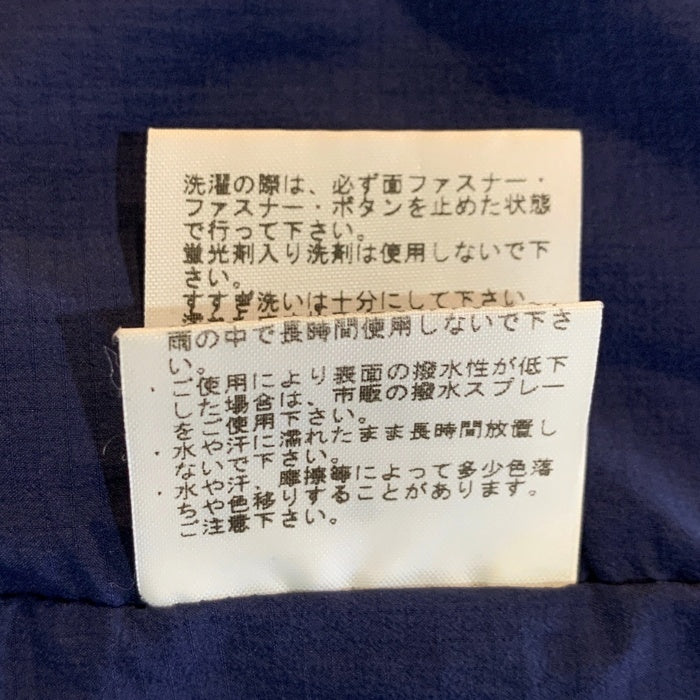 洗濯の際は、必ず面ファスナー・
ファスナー・ボタンを止めた状態
で行って下さい。
蛍光剤入り洗剤は使用しないで下
さい。
すすぎ洗いは十分にして下さい。
雨の中で長時間使用しないで下さ
い。
・ご使用により表面の撥水性が低下
した場合は、市販の撥水スプレー
をご使用下さい。
・水や汗に濡れたまま長時間放置し
ないで下さい。
・水や汗、摩擦等によって多少色落
ちや色移りすることがあります。
ご注意下さい。